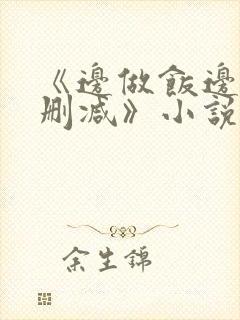 《邊做飯邊
刪減》小說
余生錦